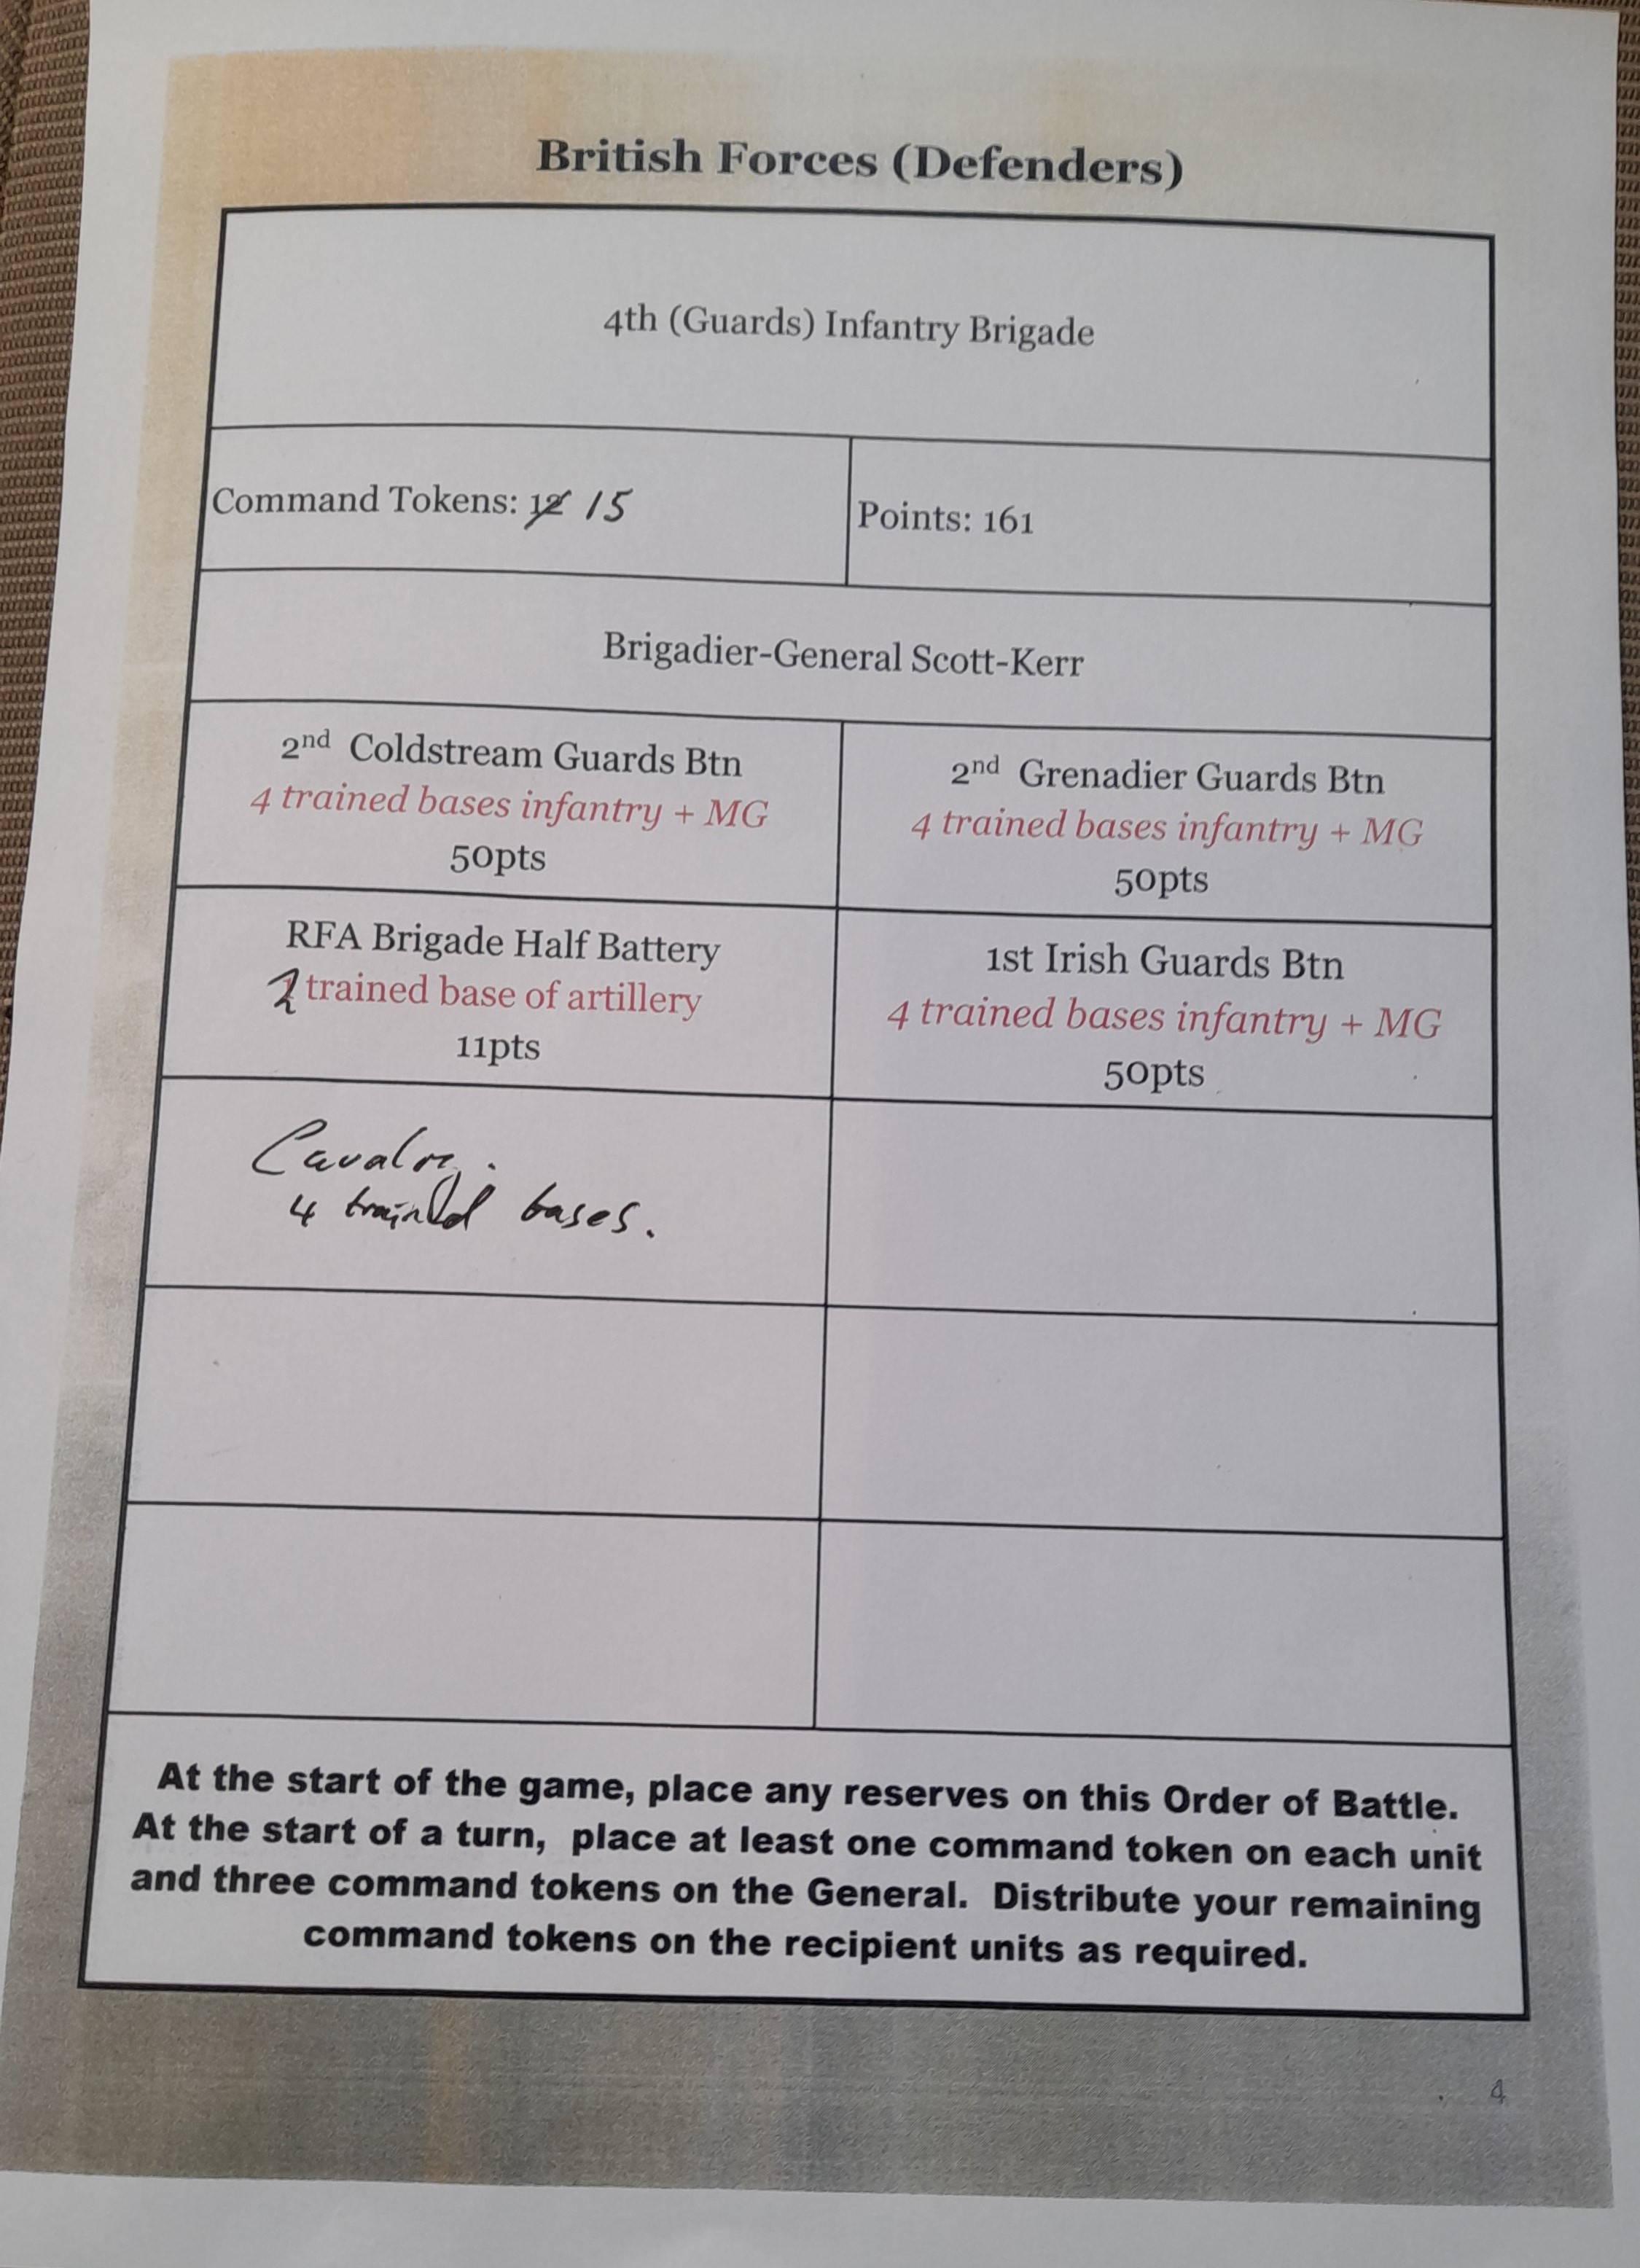 British Forces (Defenders)
4th (Guards) Infantry Brigade
Command Tokens: 12 15
Points: 161
Brigadier-General Scott-Kerr
2nd Coldstream Guards Btn
4 trained bases infantry + MG
50pts
2nd Grenadier Guards Btn
4 trained bases infantry + MG
50pts
RFA Brigade Half Battery
2 trained base of artillery
11pts
1st Irish Guards Btn
4 trained bases infantry + MG
50pts
Cavalry.
4 trained bases.
At the start of the game, place any reserves on this Order of Battle.
At the start of a turn, place at least one command token on each unit
and three command tokens on the General. Distribute your remaining
command tokens on the recipient units as required.
4